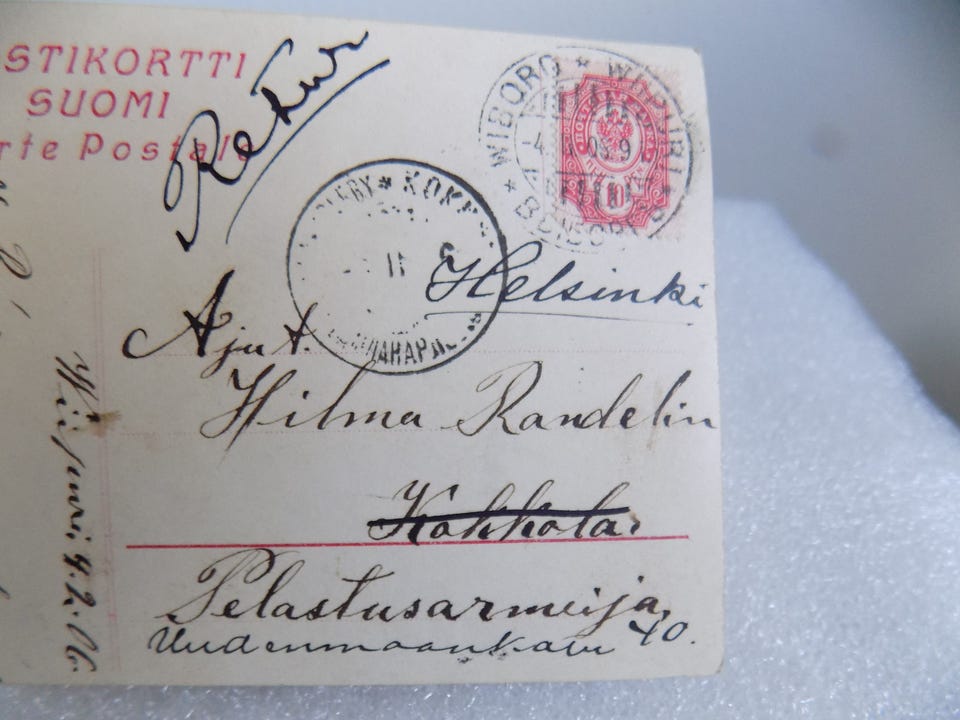 STIKORTTI
SUOMI
rte Postale
Retur
WIBORG * WIIPURI
10
KOK
Helsinki
Ajut.
Hilma Randelin
Kokkola
Pelastusarmeija
Uudenmaankatu 40.
Wiipuri 4.2.06.